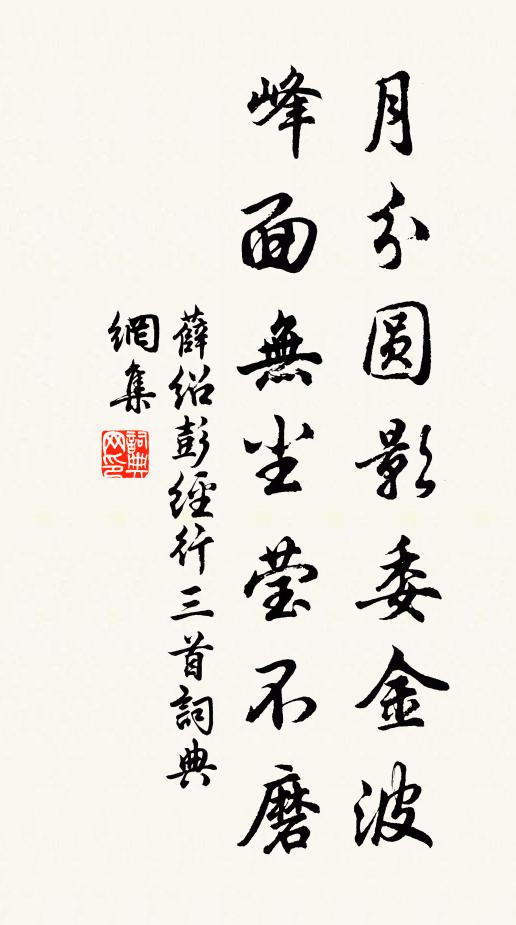 月分圆影委金波
峰面無尘莹不磨
薛绍彭經行三首詞典
網集
詞典网印